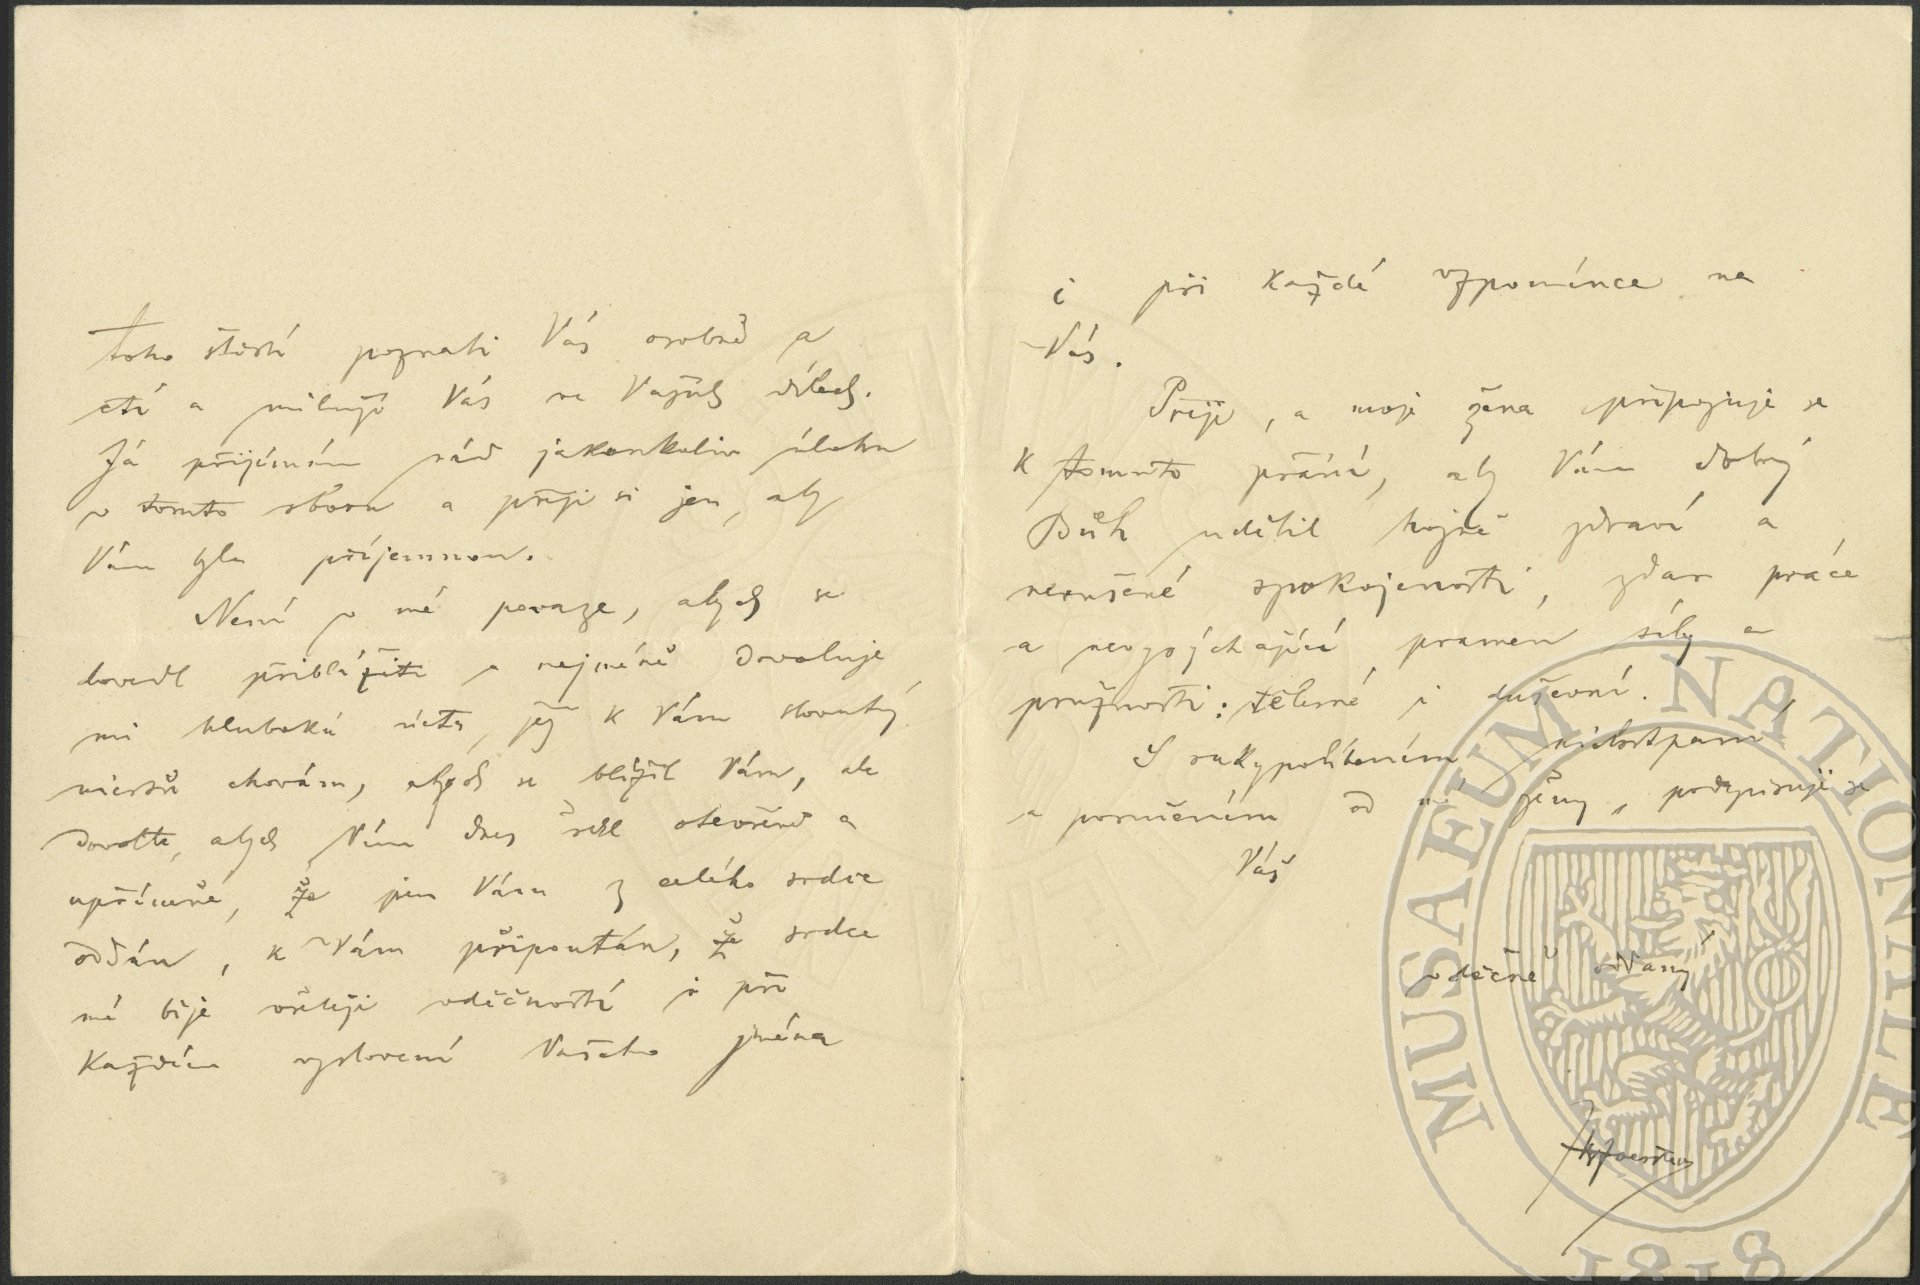 toho štěstí poznati Vás osobně a
ctí a miluje Vás ve Vašich dílech.
Já přijímám rád jakoukoliv úlohu
v tomto sboru a přeji si jen, aby
Vám byla příjemnou.
Není v mé povaze, abych se
dovedl přiblížiti a nejméně dovoluje
mi hluboká úcta, jež k Vám
chovám, abych se blížil Vám, ale
dovolte, abych Vám dnes řekl otevřeně a
upřímně, že jsem Vám z celého srdce
oddán, k Vám připoután, že srdce
mé bije vřeleji vděčností i při
každém vyslovení Vašeho jména
i při každé vzpomínce na
Vás.
Přeji, a moje žena připojuje se
k tomuto přání, aby Vám dobrý
Bůh udělil hojně zdraví a
nerušené spokojenosti, zdar práce
a nevysýchající pramen síly a
pružnosti: tělesné i duševní.
S rukypolíbením milostpaní
a poručením od mé ženy, podepisuji se
Váš
vděčně oddaný
JBFoerster
MUSAEUM NATIONALE
1818